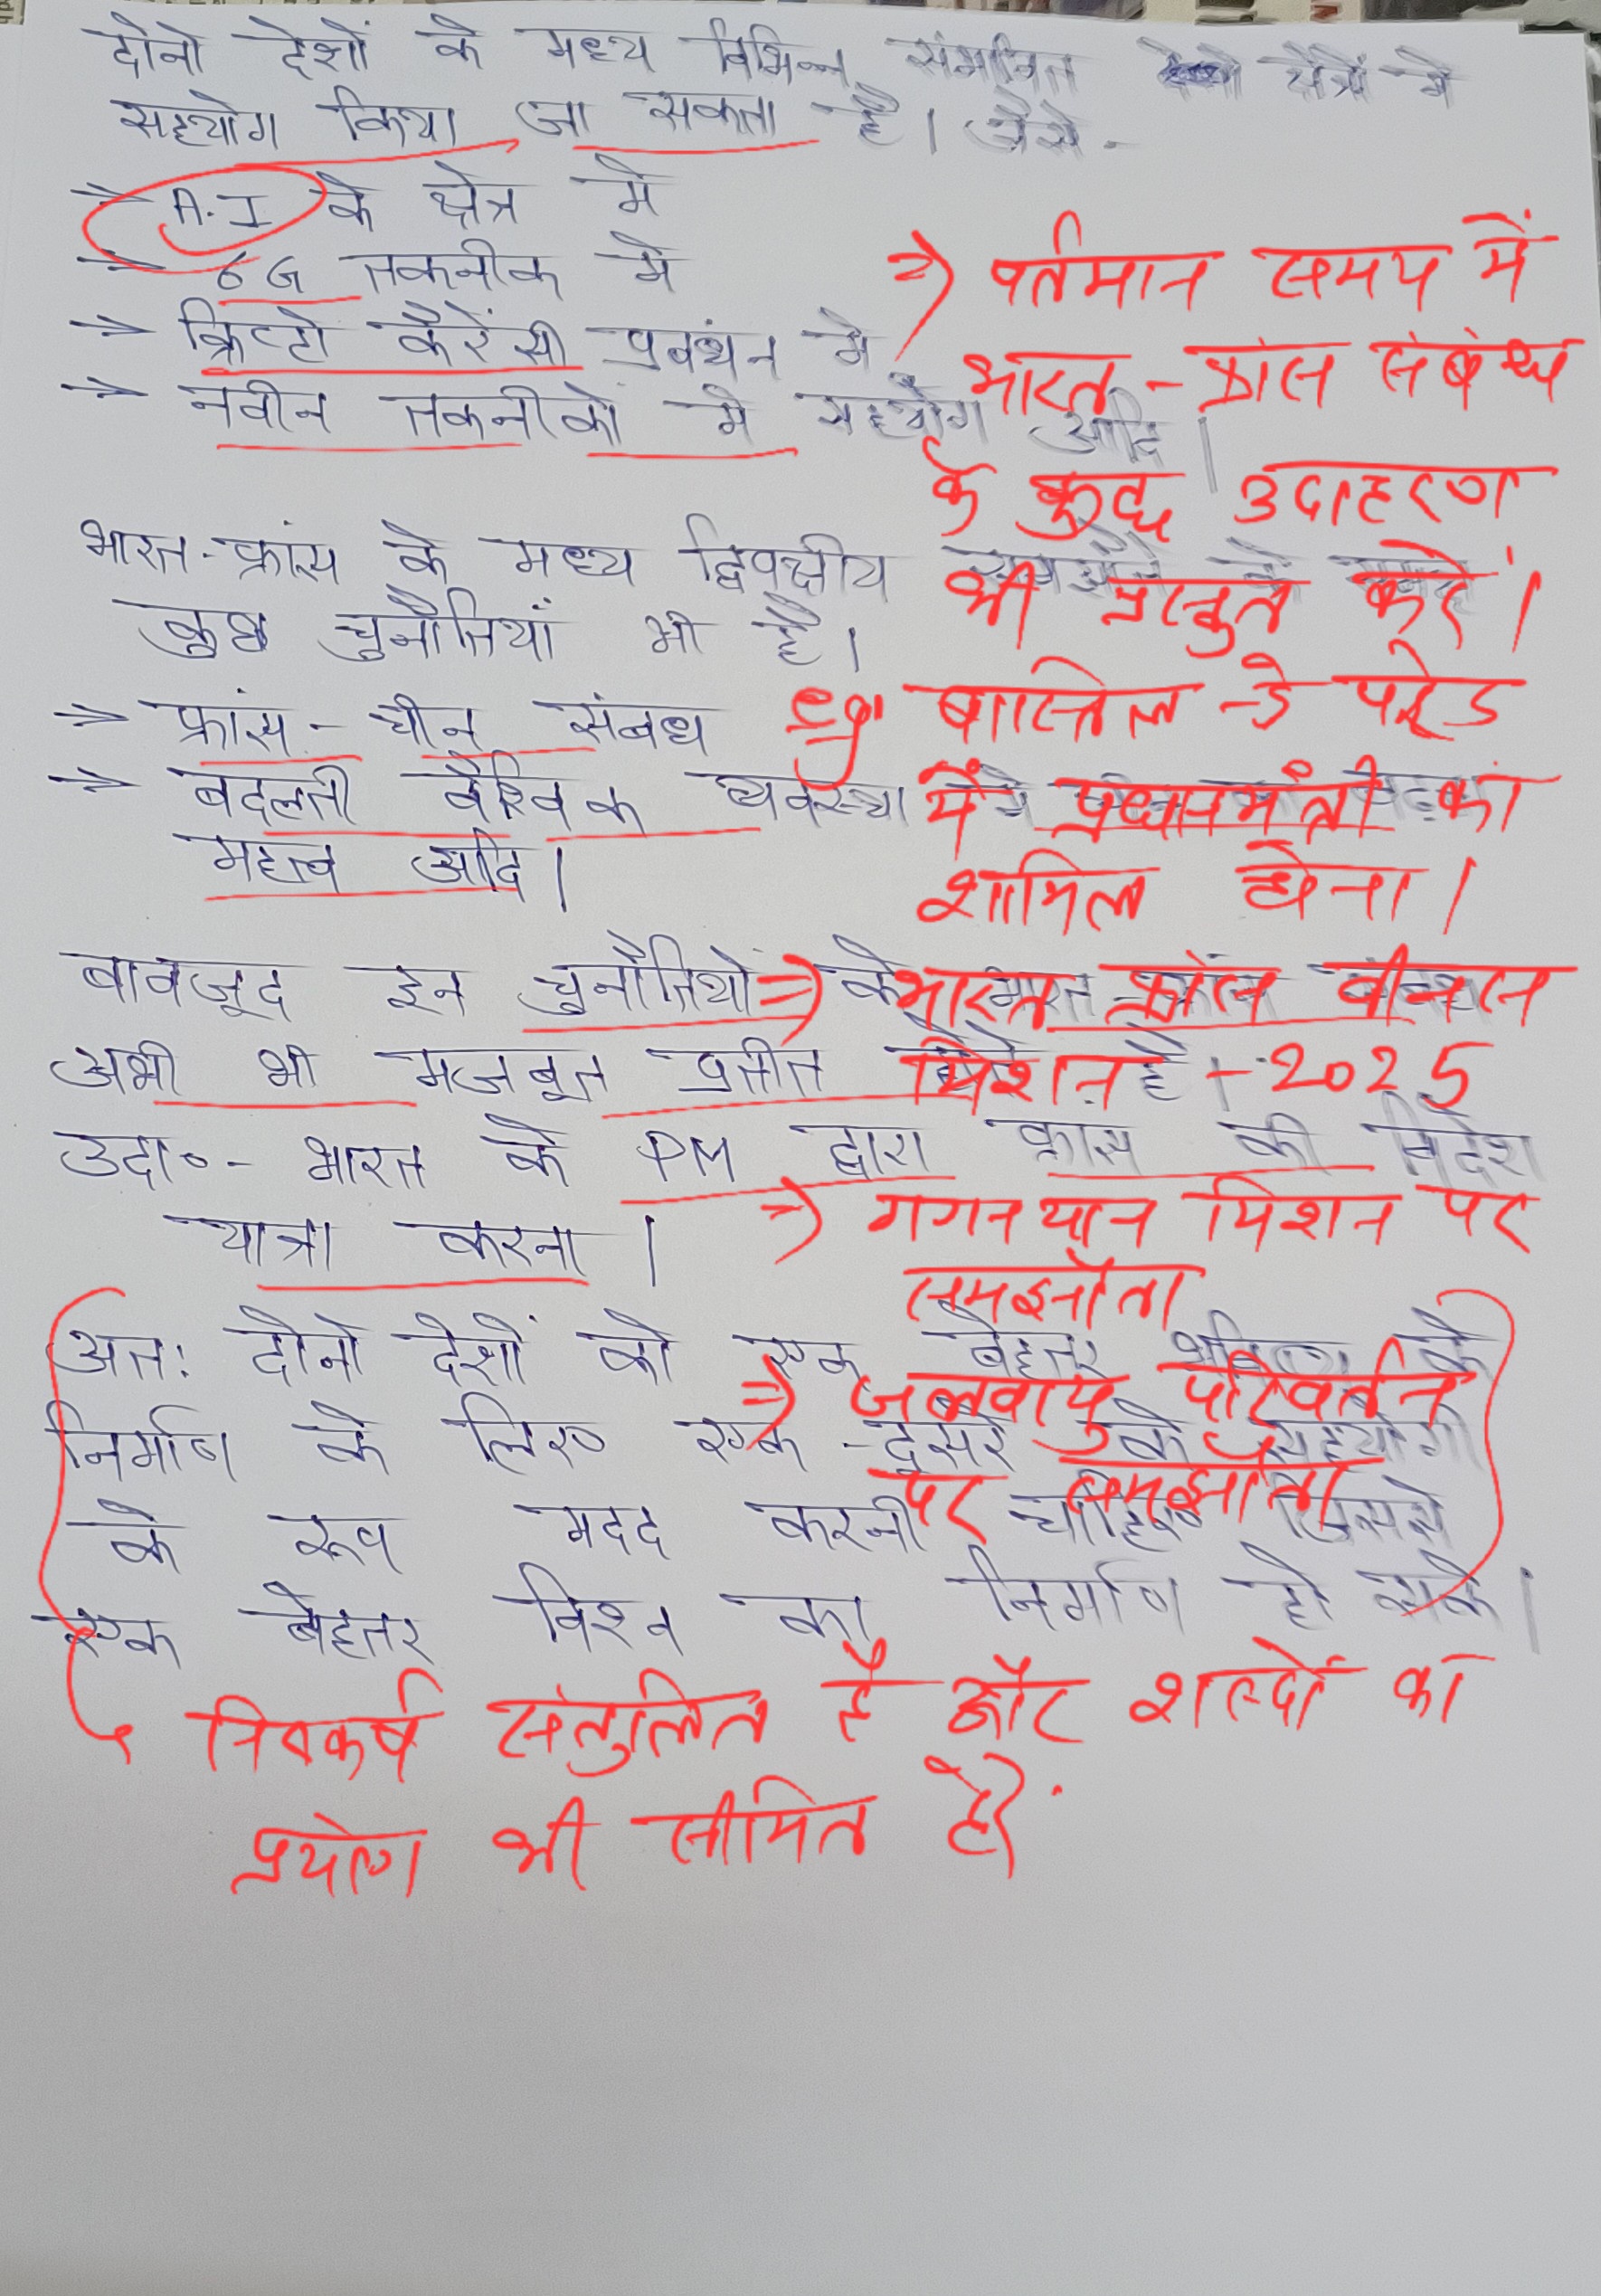 दोनो देशों के मध्य विभिन्न संभावित क्षेत्रों मे
सहयोग किया जा सकता है। जैसे -
→ A.I के क्षेत्र मे
→ 6G तकनीक मे
→ क्रिप्टो कैरेंसी प्रबंधन मे
→ नवीन तकनीको मे सहयोग आदि।
⇒ वर्तमान समय में
भारत - फ्रांस संबंध
के कुछ उदाहरण
भी प्रस्तुत करें।
eg बास्तिल - डे परेड
में प्रधानमंत्री का
शामिल होना।
भारत-फ्रांस के मध्य द्विपक्षीय
कुछ चुनौतियाँ भी है।
→ फ्रांस - चीन संबंध
→ बदलती वैश्विक व्यवस्था मे
महत्व आदि।
बावजूद इन चुनौतियो के भारत - फ्रांस
अभी भी मजबूत प्रतीत है।
⇒ भारत फ्रांस वीनस
मिशन - 2025
उदा०- भारत के PM द्वारा फ्रांस की विदेश
यात्रा करना।
⇒ गगनयान मिशन पर
समझौता
⇒ जलवायु परिवर्तन
पर समझौता
अतः दोनो देशों को एक बेहतर भविष्य के
निर्माण के लिए एक - दूसरे के सहयोगी
के रूप मदद करनी चाहिए जिससे
एक बेहतर विश्व का निर्माण हो सके।
निष्कर्ष संतुलित है और शब्दों का
प्रयोग भी सीमित है।